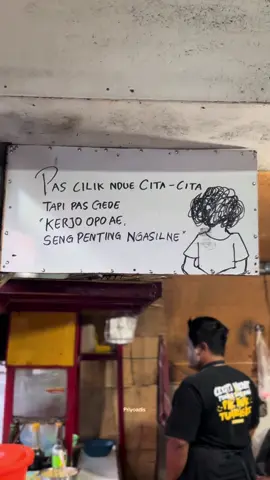 PAS CILIK NDUE CITA-CITA
TAPI PAS GEDE
"KERJO OPO AE,
SENG PENTING NGASILNE"
Priyosetio